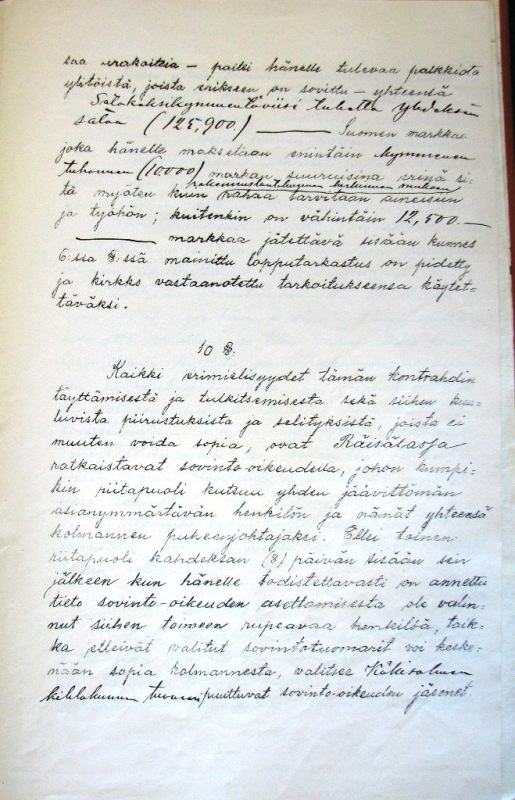 saa urakoitsia – paitsi hänelle tulevaa palkkiota
ylitöistä, joista erikseen on sovittu – yhteensä
Satakaksikymmentäviisi tuhatta yhdeksän
sataa (125,900.) ——— Suomen markkaa
joka hänelle maksetaan enintäin kymmenen
tuhannen (10000) markan suuruisina erinä si-
rakennustoimikunnan mukaan
tä myöten kuin rahaa tarvitaan aineisiin
ja työhön; kuitenkin on vähintäin 12,500.—
——— markkaa jätettävä sisään kunnes
6:ssa §:ssä mainittu lopputarkastus on pidetty
ja kirkko vastaanotettu tarkoitukseensa käytet-
täväksi.
10 §:
Kaikki erimielisyydet tämän kontrahdin
täyttämisestä ja tulkitsemisesta sekä siihen kuu-
luvista piirustuksista ja selityksistä, joista ei
muuten voida sopia, ovat Räisälässä
ratkaistavat sovinto-oikeudessa, johon kumpi-
kin riitapuoli kutsuu yhden jäävittömän
asianymmärtävän henkilön ja nämät yhteensä
kolmannen puheenjohtajaksi. Ellei toinen
riitapuoli kahdeksan (8) päivän sisään sen
jälkeen kun hänelle todistettavasti on annettu
tieto sovinto-oikeuden asettamisesta ole valin-
nut siihen toimeen rupeavaa henkilöä, taik-
ka elleivät valitut sovintotuomarit voi keske-
nään sopia kolmannesta, valitsee Käkisalmen
kihlakunnan tuomari puuttuvat sovinto-oikeuden jäsenet.